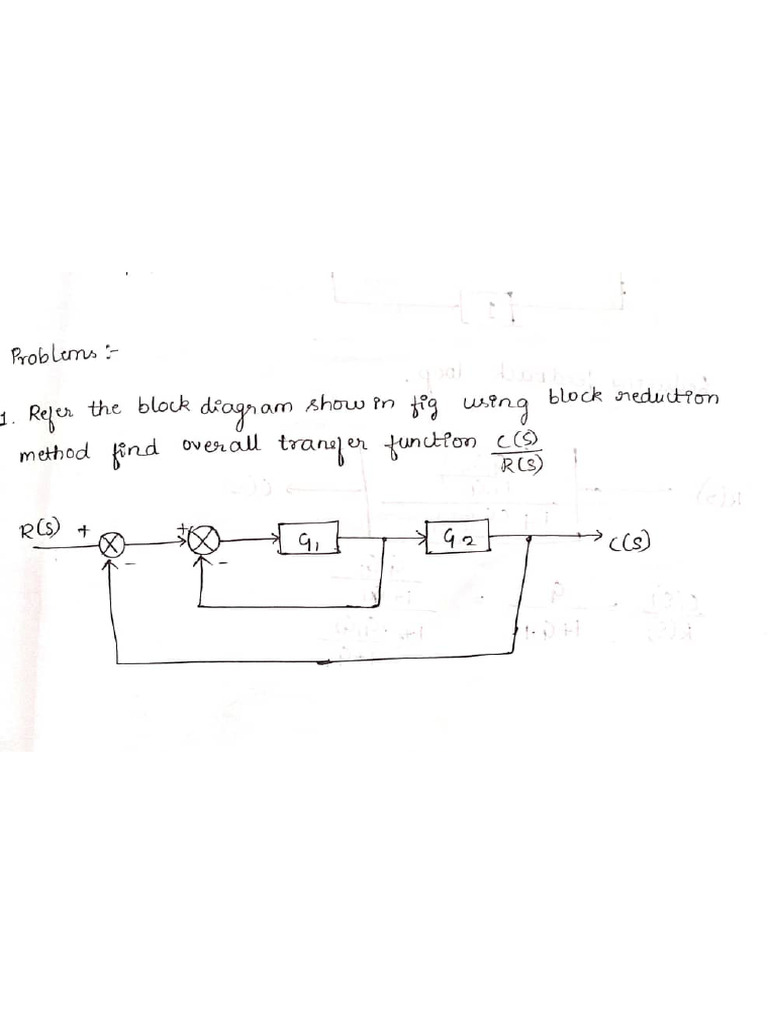 Problems :-
1. Refer the block diagram show in fig using block reduction
method find overall tranefer function C(S)/R(S)
R(S) + - + - G1 G2 C(S)